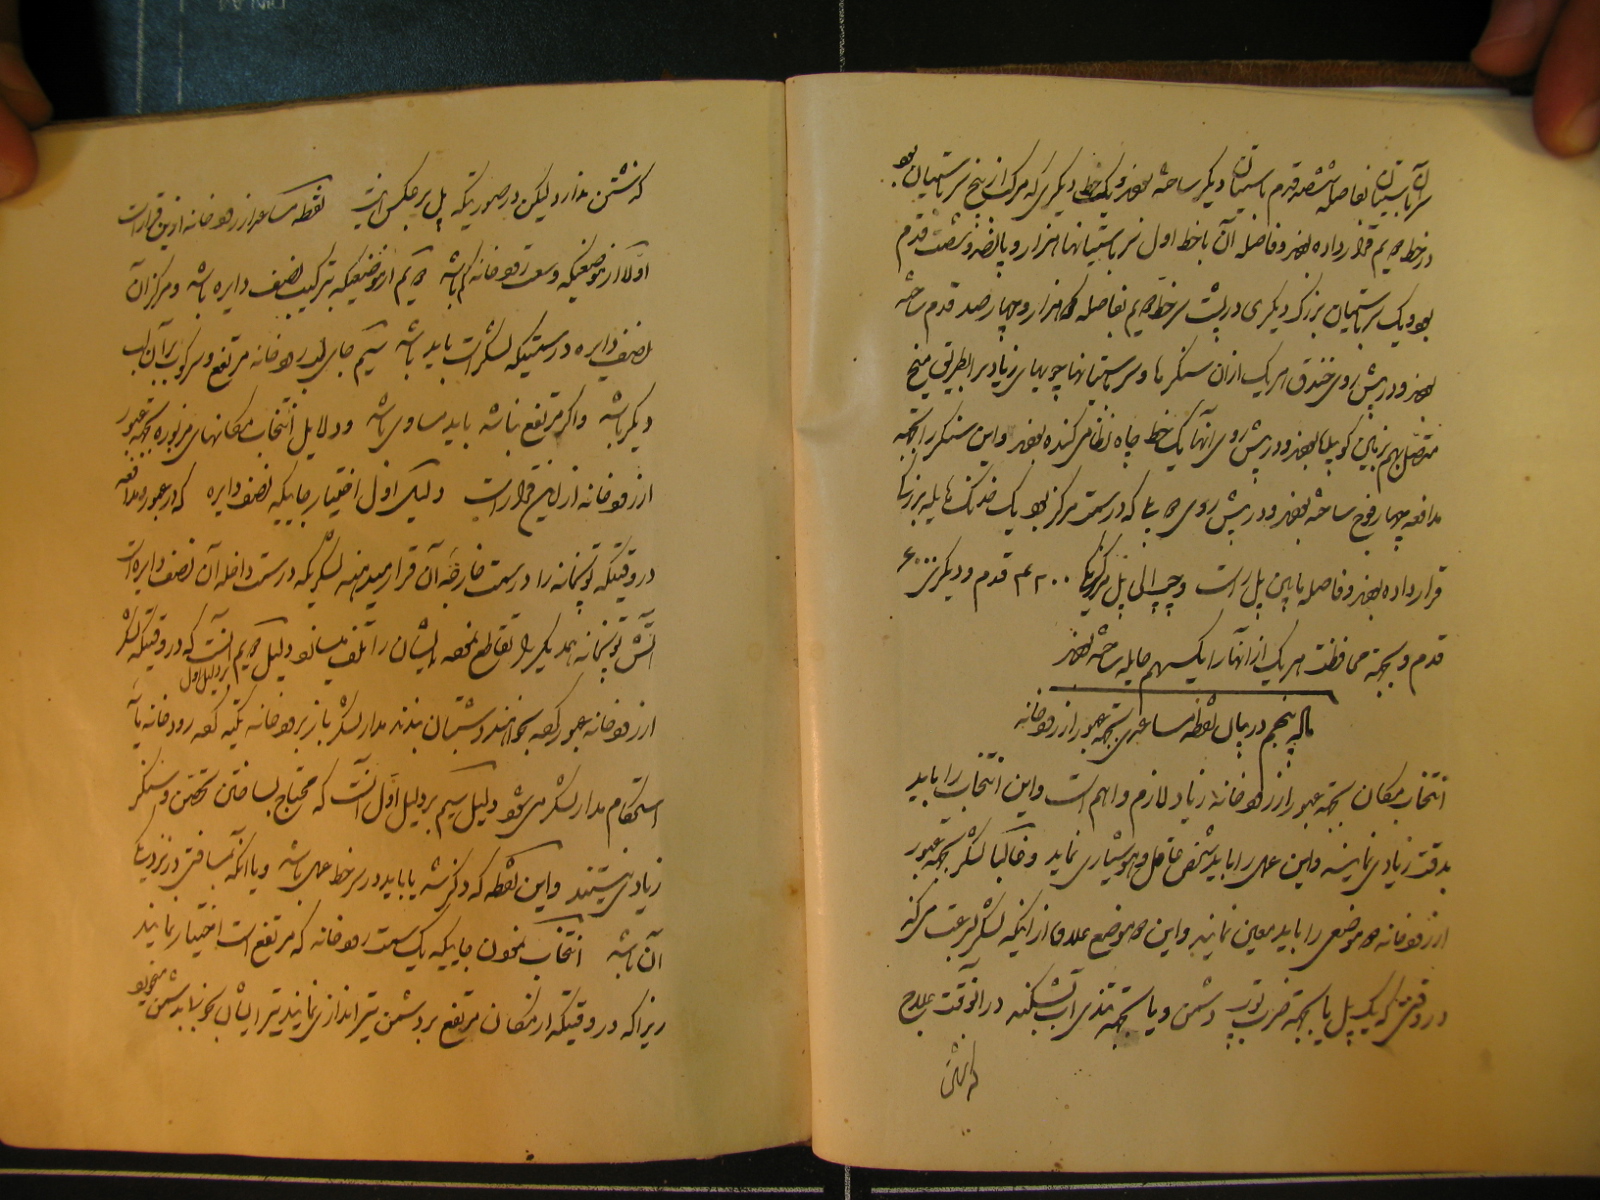 بفاصله ششصد قدم باستیان دیگر ساخته بودند و یک خط دیگری که مرکب از پنج سر باستیان بود
در خط دویم قرار داده بودند و فاصله آن با خط اول سر باستیانها هزار و پانصد و شصت قدم
بود و یک سر باستیان بزرگ دیگری در پشت سر خط دویم بفاصله دو هزار و چهار صد قدم ساخته
بودند و در پیش روی خندق هر یک از ان سنگرها و سر باستیانها چوبهای زیاد بطریق میخ
متصل بهم زمین کوبیده بودند و در پیش روی آنها یک خط چاه نظامی کنده بودند و این سنگر را بجهة
مدافعه چهار فوج ساخته بودند و در پیش روی که در سمت مرکز بود یک بزرگ
قرار داده بودند و فاصله مابین پل راست و چپ الی پل مرکزی ۴۲۰۰ قدم و دیگری ۶۰۰۰
قدم و بجهة محافظت هر یک از آنها را یک سهم حایله ساخته بودند
پنجم در بیان نقطه مساعدی بجهة عبور از رودخانه
انتخاب مکان بجهة عبور از رودخانه زیاد لازم و اهم است و این انتخاب را باید
بدقت زیادی نمایند و این عمل را باید شخص عاقل و هوشیاری نماید و غالبا لشکر بجهة عبور
از رودخانه دو موضعی را باید معین نمایند و این دو موضع علاوه از اینکه لشکر بسرعت میکند
در وقتی که یک پل یا بجهة ضرب توپ دشمن و یا بجهة تندی آب بشکند در آنوقت علاج
گذشتن
گذشتن ندارد لیکن در صورتیکه پل بر عکس است نقطه مساعد از رودخانه ازین قرار است
اولا از موضعیکه وسعت رودخانه کم باشد دویم از موضعیکه بترکیب نصف دایره باشد و مرکز آن
نصف دایره در سمتیکه لشکر است باید باشد سیم جای لب رودخانه مرتفع و سرکوب بر آن لب
دیگر باشد و اگر مرتفع نباشد باید مساوی باشد و دلایل انتخاب مکانهای مزبوره بجهة عبور
از رودخانه از این قرار است دلیل اول اختیار جاییکه نصف دایره که در عبور و مدافعه
در وقتیکه توپخانه را در سمت خارجه آن قرار میدهند لشکریکه در سمت داخله آن نصف دایره است
آتش توپخانه همدیگر را تقاطع نموده ایشان را تلف میسازد دلیل دویم بر دلیل اول آنست که در وقتیکه لشکر
از رودخانه عبور کرده بخواهند دستبان بندند مدار لشکر باز بر رودخانه تکیه کرده رودخانه باعث
استحکام مدار لشکر می شود دلیل سیم بر دلیل اول آنست که محتاج بساختن تحصن و سنگر
زیادی نیستند و این نقطه که ذکر شد یا باید در سر خط عمل باشد و یا آنکه مسافتی در نزدیک
آن باشد انتخاب نمودن جاییکه یک سمت رودخانه که مرتفع است اختیار نمایند
زیرا که در وقتیکه از مکان مرتفع بر دشمن تیر اندازی نمایند تیر ایشان خوب بدشمن میخورد